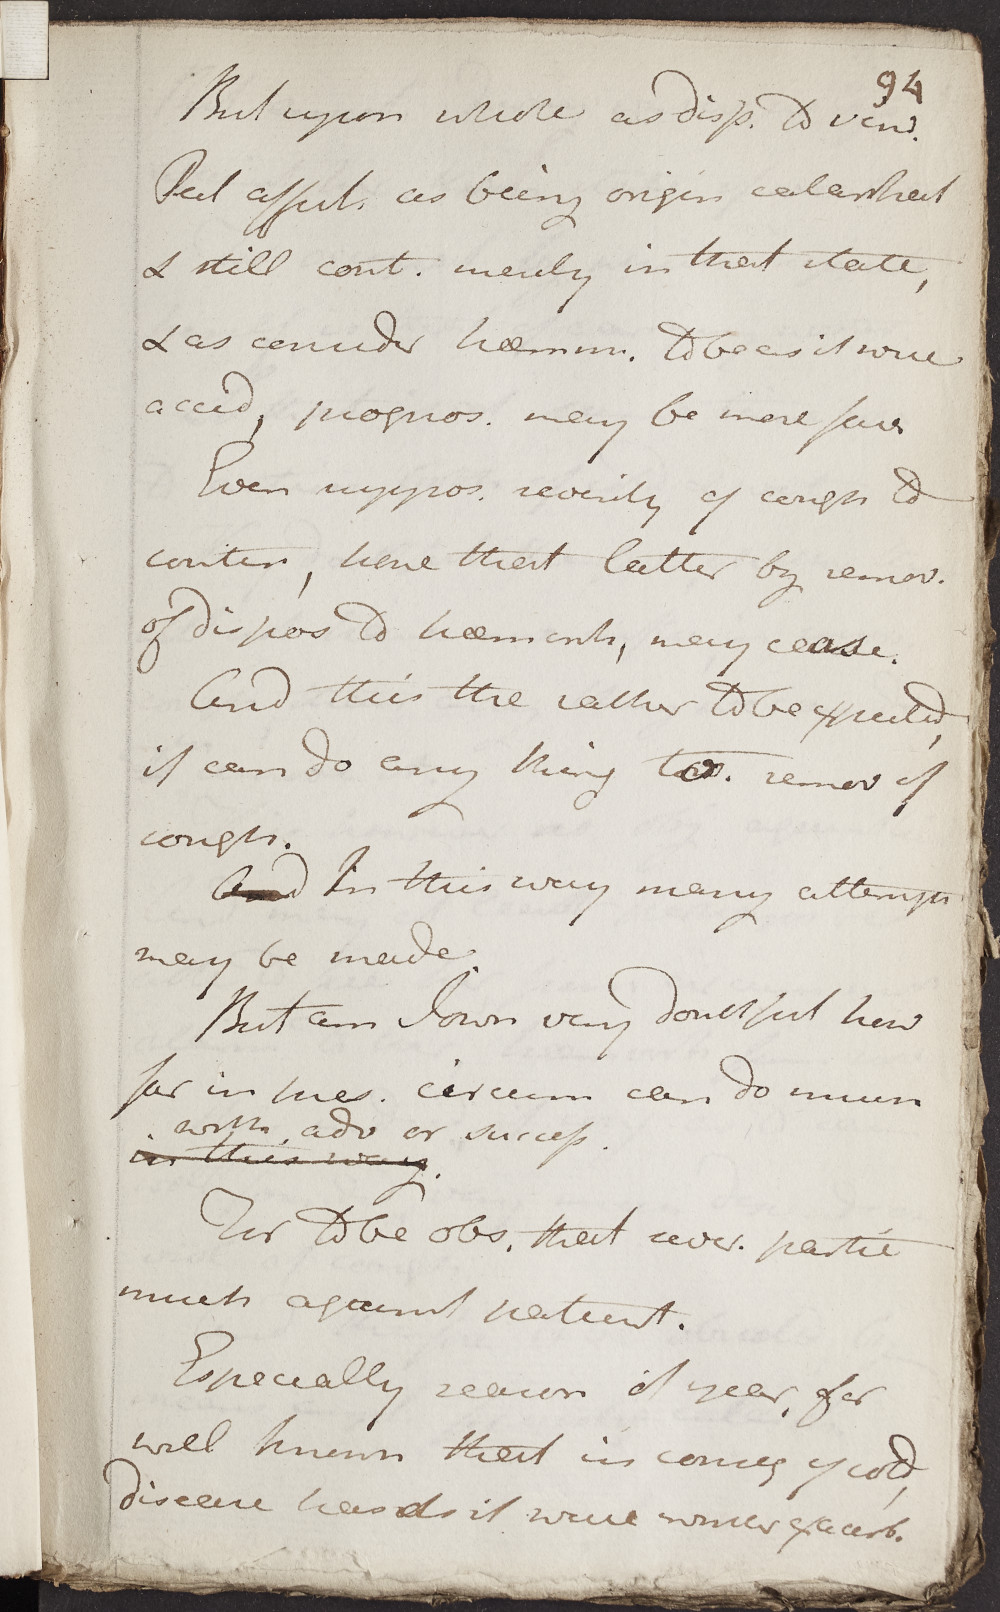 94
But upon whole as disp. to view.
Pul affect. as being origin catarrhal
& still cont. merely in that state,
& as consider hæmorr. to be as it were
accid, prognos. may be more fav
Even suppos. severity of cough to
contin, here that latter by remov.
of dispos to hæmorrh, may cease.
And this the rather to be expected,
if can do any thing tow. remov of
cough.
And In this way many attempts
may be made
But am I own very doubtful how
far in pres. circum can do much
with adv or success.
in this way.
For to be obs. that sever. partic
much against patient.
Especially season of year, for
well known that in coming of cold,
disease has as it were winter exacerb.